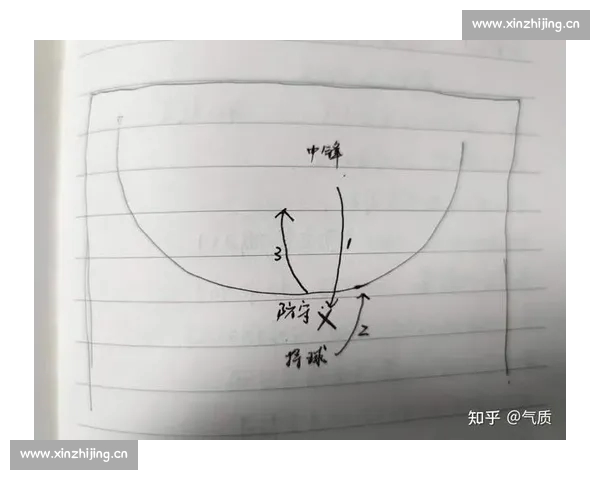 www.xinzhijing.cn
中锋
1
3
防守
2
持球
知乎 @气质
www.xinzhijing.cn